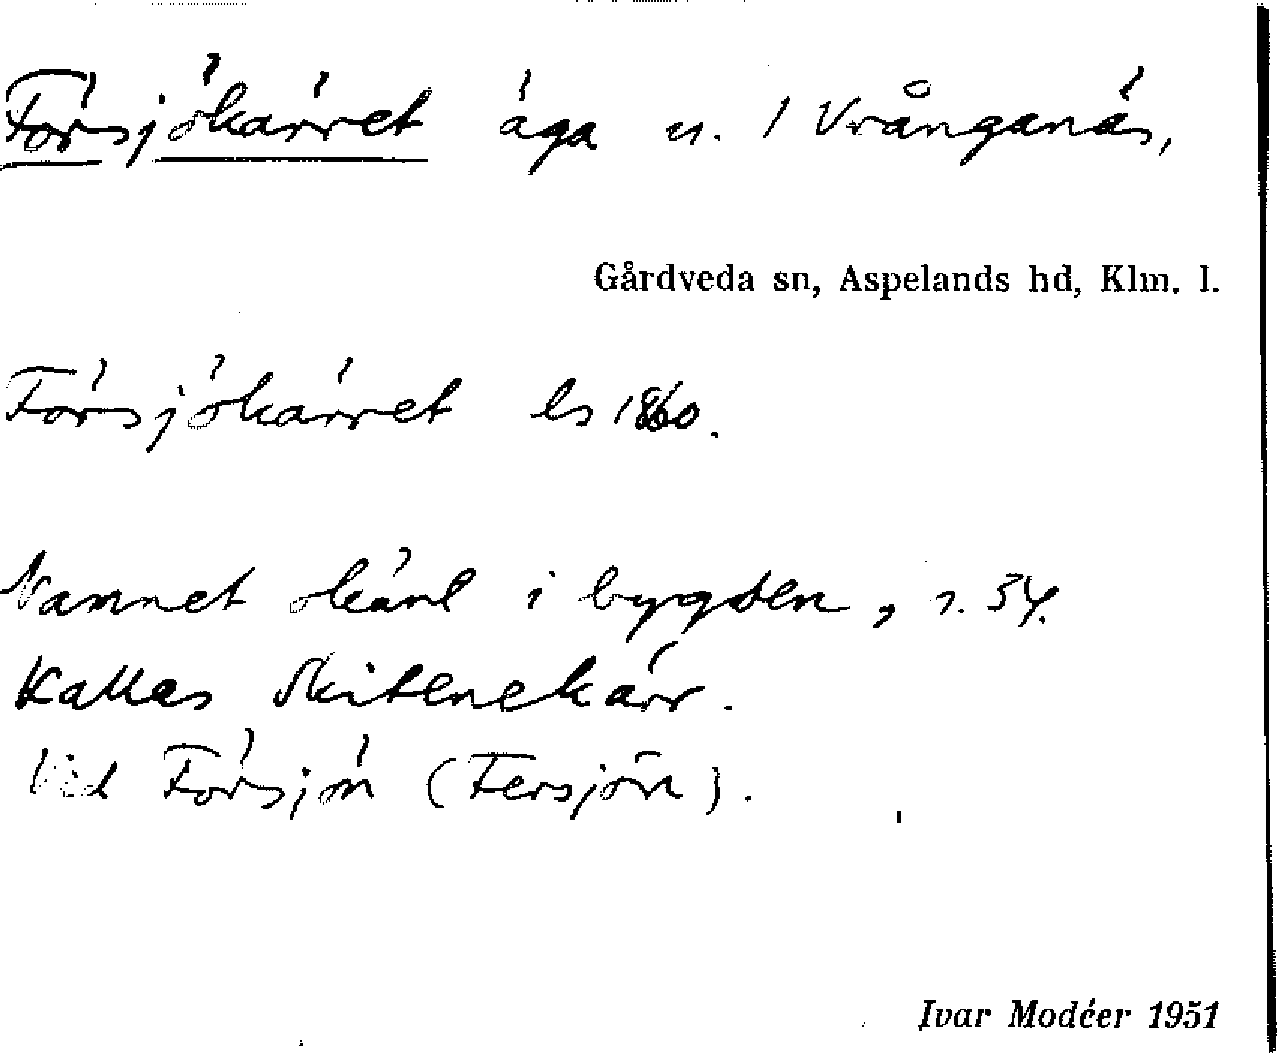 Försjökärret äga n. 1 Vrånganäs,
Gårdveda sn, Aspelands hd, Klm. l.
Försjökärret ls 1860.
Namnet okänt i bygden, s. 54.
Kallas Skitenekärr.
Vid Försjön (Fersjön).
Ivar Modéer 1951